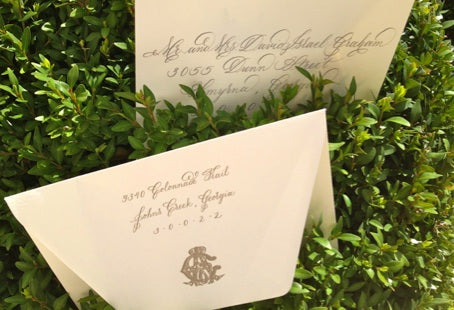 Mr. and Mrs. David Israel Graham
3055 Dunn Street
Smyrna,
9340 Colonnade Trail
Johns Creek, Georgia
3·0·0·2·2